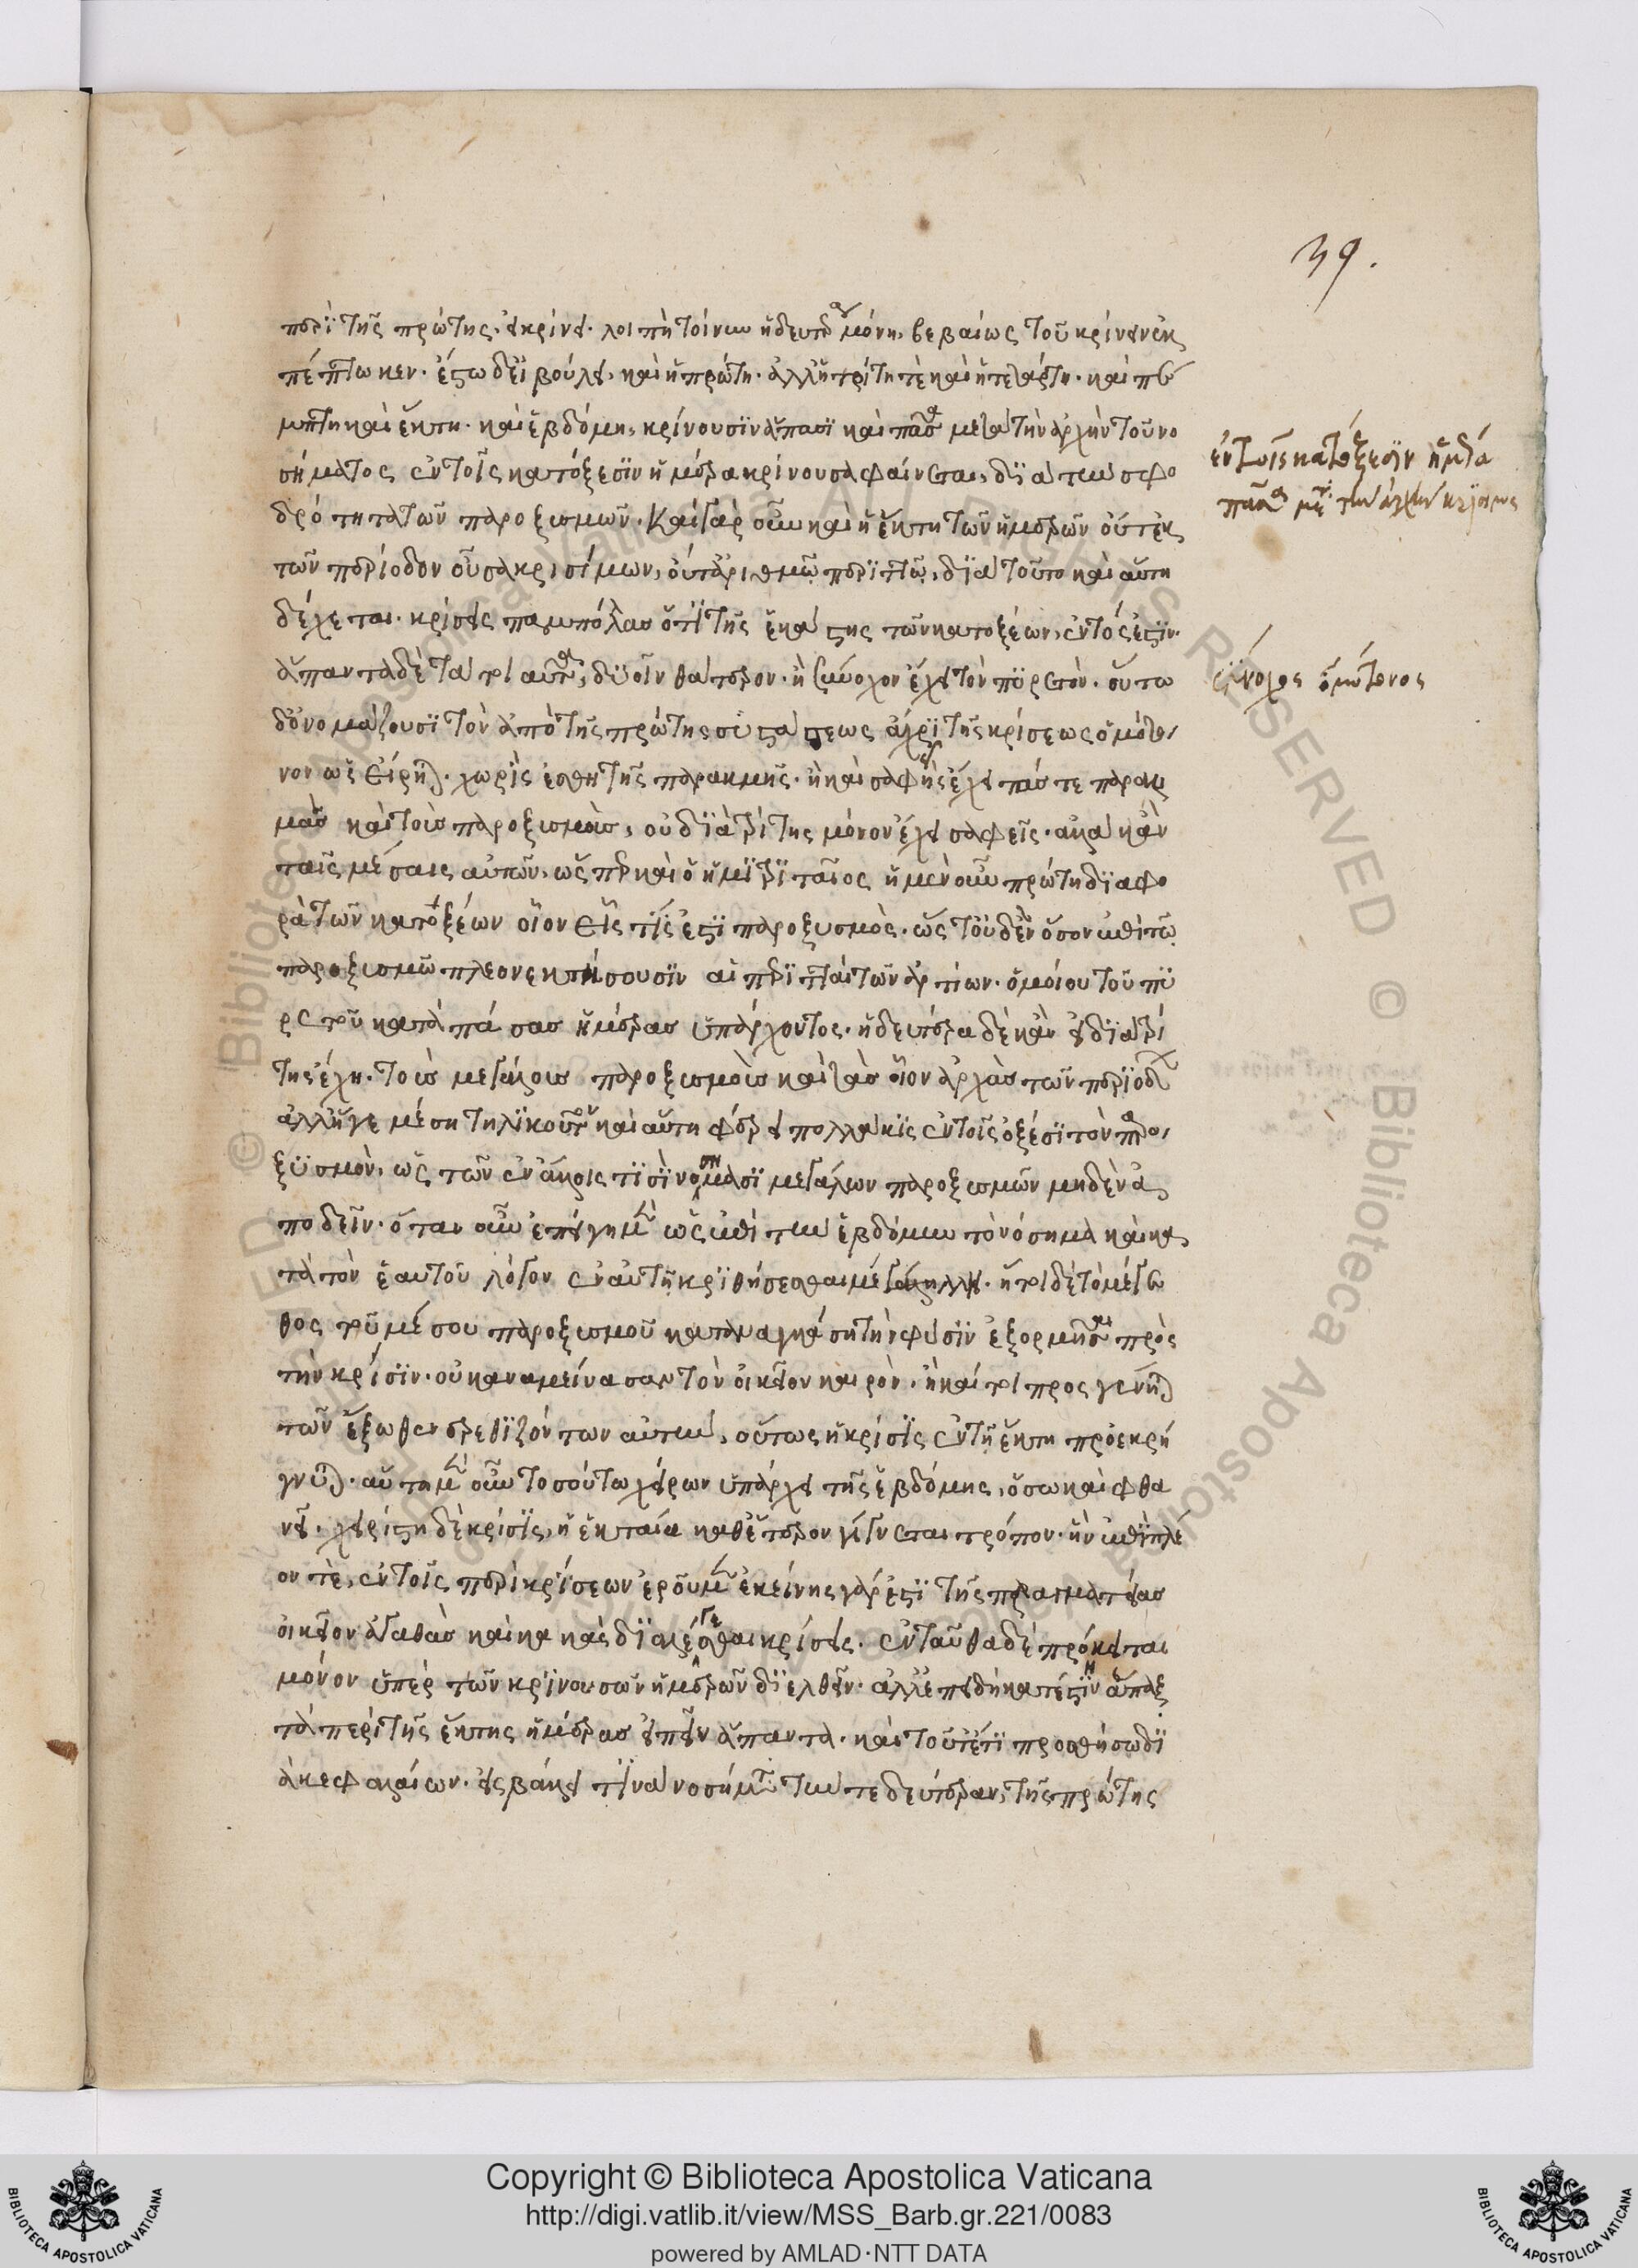 39.
περὶ τῆς πρώτης. ἀκρίνει. λοιπὴ τοίνυν ἡ δευτέρα μόνη, βεβαίως τοῦ κρίνειν ἐκ
πέπτωκεν. ἔστω δ' εἰ βούλει, καὶ ἡ πρώτη. ἀλλ' ἡ τρίτη τὲ καὶ ἡ τετάρτη. καὶ πέ
μπτη καὶ ἕκτη. καὶ ἑβδόμη, κρίνουσιν ἅπασι καὶ πᾶσα μετὰ τὴν ἀρχὴν τοῦ νο
σήματος ἐν τοῖς κατόξεσιν ἡμέρα κρίνουσα φαίνεται, διὰ τὴν σφο
δρότητα τῶν παροξυσμῶν. καὶ γὰρ οὖν καὶ ἡ ἕκτη τῶν ἡμερῶν οὔτ' ἐκ
τῶν περίοδον οὖσα κρισίμων, οὔτ' ἀριθμῷ περιττῷ, διὰ τοῦτο καὶ αὕτη
δέχεται. κρίσεις παμπόλλας ὅτι τῆς ἑκάστης τῶν κατοξέων, ἐντός ἐστιν.
ἅπαντα δὲ τὰ τοιαῦτα, δυοῖν θάτερον. ἢ σύνοχον ἔχει τὸν πυρετὸν. οὕτω
δ' ὀνομάζουσι τὸν ἀπὸ τῆς πρώτης συστάσεως ἄχρι τῆς κρίσεως ὁμότο
νον ὡς εἴρηται. χωρὶς ἐσθῆ τῆς παρακμῆς. ἢ καὶ σαφεῖς ἔχει τάς τε παρακ
μὰς καὶ τοὺς παροξυσμοὺς, οὐ διὰ τρίτης μόνον ἔχει σαφεῖς. ἀλλὰ κἀν
ταῖς μέσαις αὐτῶν. ὥσπερ καὶ ὁ ἡμιτριταῖος ἡ μὲν οὖν πρώτη διαφο
ρὰ τῶν κατοξέων οἷον εἷς τίς ἐστι παροξυσμὸς. ὥστ' οὐδὲν ὅσον ἐπὶ τῷ
παροξυσμῷ πλεονεκτήσουσιν αἱ περιτταὶ τῶν ἀρτίων. ὁμοίου τοῦ πυ
ρετοῦ κατὰ πάσας ἡμέρας ὑπάρχοντος. ἡ δευτέρα δὲ κἂν εἰ διὰ τρί
της ἔχῃ. τοὺς μεγάλους παροξυσμοὺς καὶ τὰς οἷον ἀρχὰς τῶν περιόδων
ἀλλ' ἥγε μέση τηλικοῦτον καὶ αὕτη φέρει πολλάκις ἐν τοῖς ὀξέσι τὸν παρο
ξυσμὸν, ὡς τῶν ἐν ἄλλοις τισὶ νοσήμασι μεγάλων παροξυσμῶν μηδὲν ἀ
ποδεῖν. ὅταν οὖν ἐπείγημεν ὡς ἐπὶ τὴν ἑβδόμην τὸ νόσημα καὶ κα
τὰ τὸν ἑαυτοῦ λόγον ἐν αὐτῇ κριθήσεσθαι μέλλῃ. ἤτοι δὲ τὸ μέγε
θος τοῦ μέσου παροξυσμοῦ καταναγκάσῃ τὴν φύσιν ἐξορμῆσαι πρὸς
τὴν κρίσιν. οὐκ ἀναμείνασαν τὸν οἰκεῖον καιρὸν. ἢ καί τοι προσγένηται
τῶν ἔξωθεν ἐρεθιζόντων αὐτὴν, οὕτως ἡ κρίσις ἐν τῇ ἕκτῃ προεκρή
γνυται. αὕτη μὲν οὖν τοσούτω χείρων ὑπάρχει τῆς ἑβδόμης, ὅσω καὶ φθά
νει. χειρίστη δὲ κρίσις, ἡ ἑκταία καθ' ἕτερον γίγνεται τρόπον. ἣν ἐπὶ πλέ
ον τὲ, ἐν τοῖς περὶ κρίσεων ἐροῦμεν ἐκείνης γάρ ἐστι τῆς πραγματείας
οἰκεῖον ἀγαθὰς καὶ κακὰς διαλέγεσθαι κρίσεις. ἐνταῦθα δὲ πρόκειται
μόνον ὑπὲρ τῶν κρινουσῶν ἡμερῶν διελθεῖν. ἀλλ' ἐπειδὴ κατέστην ἅπαξ
τὰ περὶ τῆς ἕκτης ἡμέρας εἰπεῖν ἅπαντα. καὶ τοῦτ' ἔτι προσθήσω δι
ὰ κεφαλαίων. εἰσβάλλει τινὰ νοσήματα τήν τε δευτέραν, τῆς πρώτης
ἐν τοῖς κατόξεσιν ἡμέρα
πᾶσα μετὰ τὴν ἀρχὴν κρίσιμος
σύνοχος ὁμότονος
Copyright © Biblioteca Apostolica Vaticana
http://digi.vatlib.it/view/MSS_Barb.gr.221/0083
powered by AMLAD·NTT DATA
BIBLIOTECA APOSTOLICA VATICANA
BIBLIOTECA APOSTOLICA VATICANA